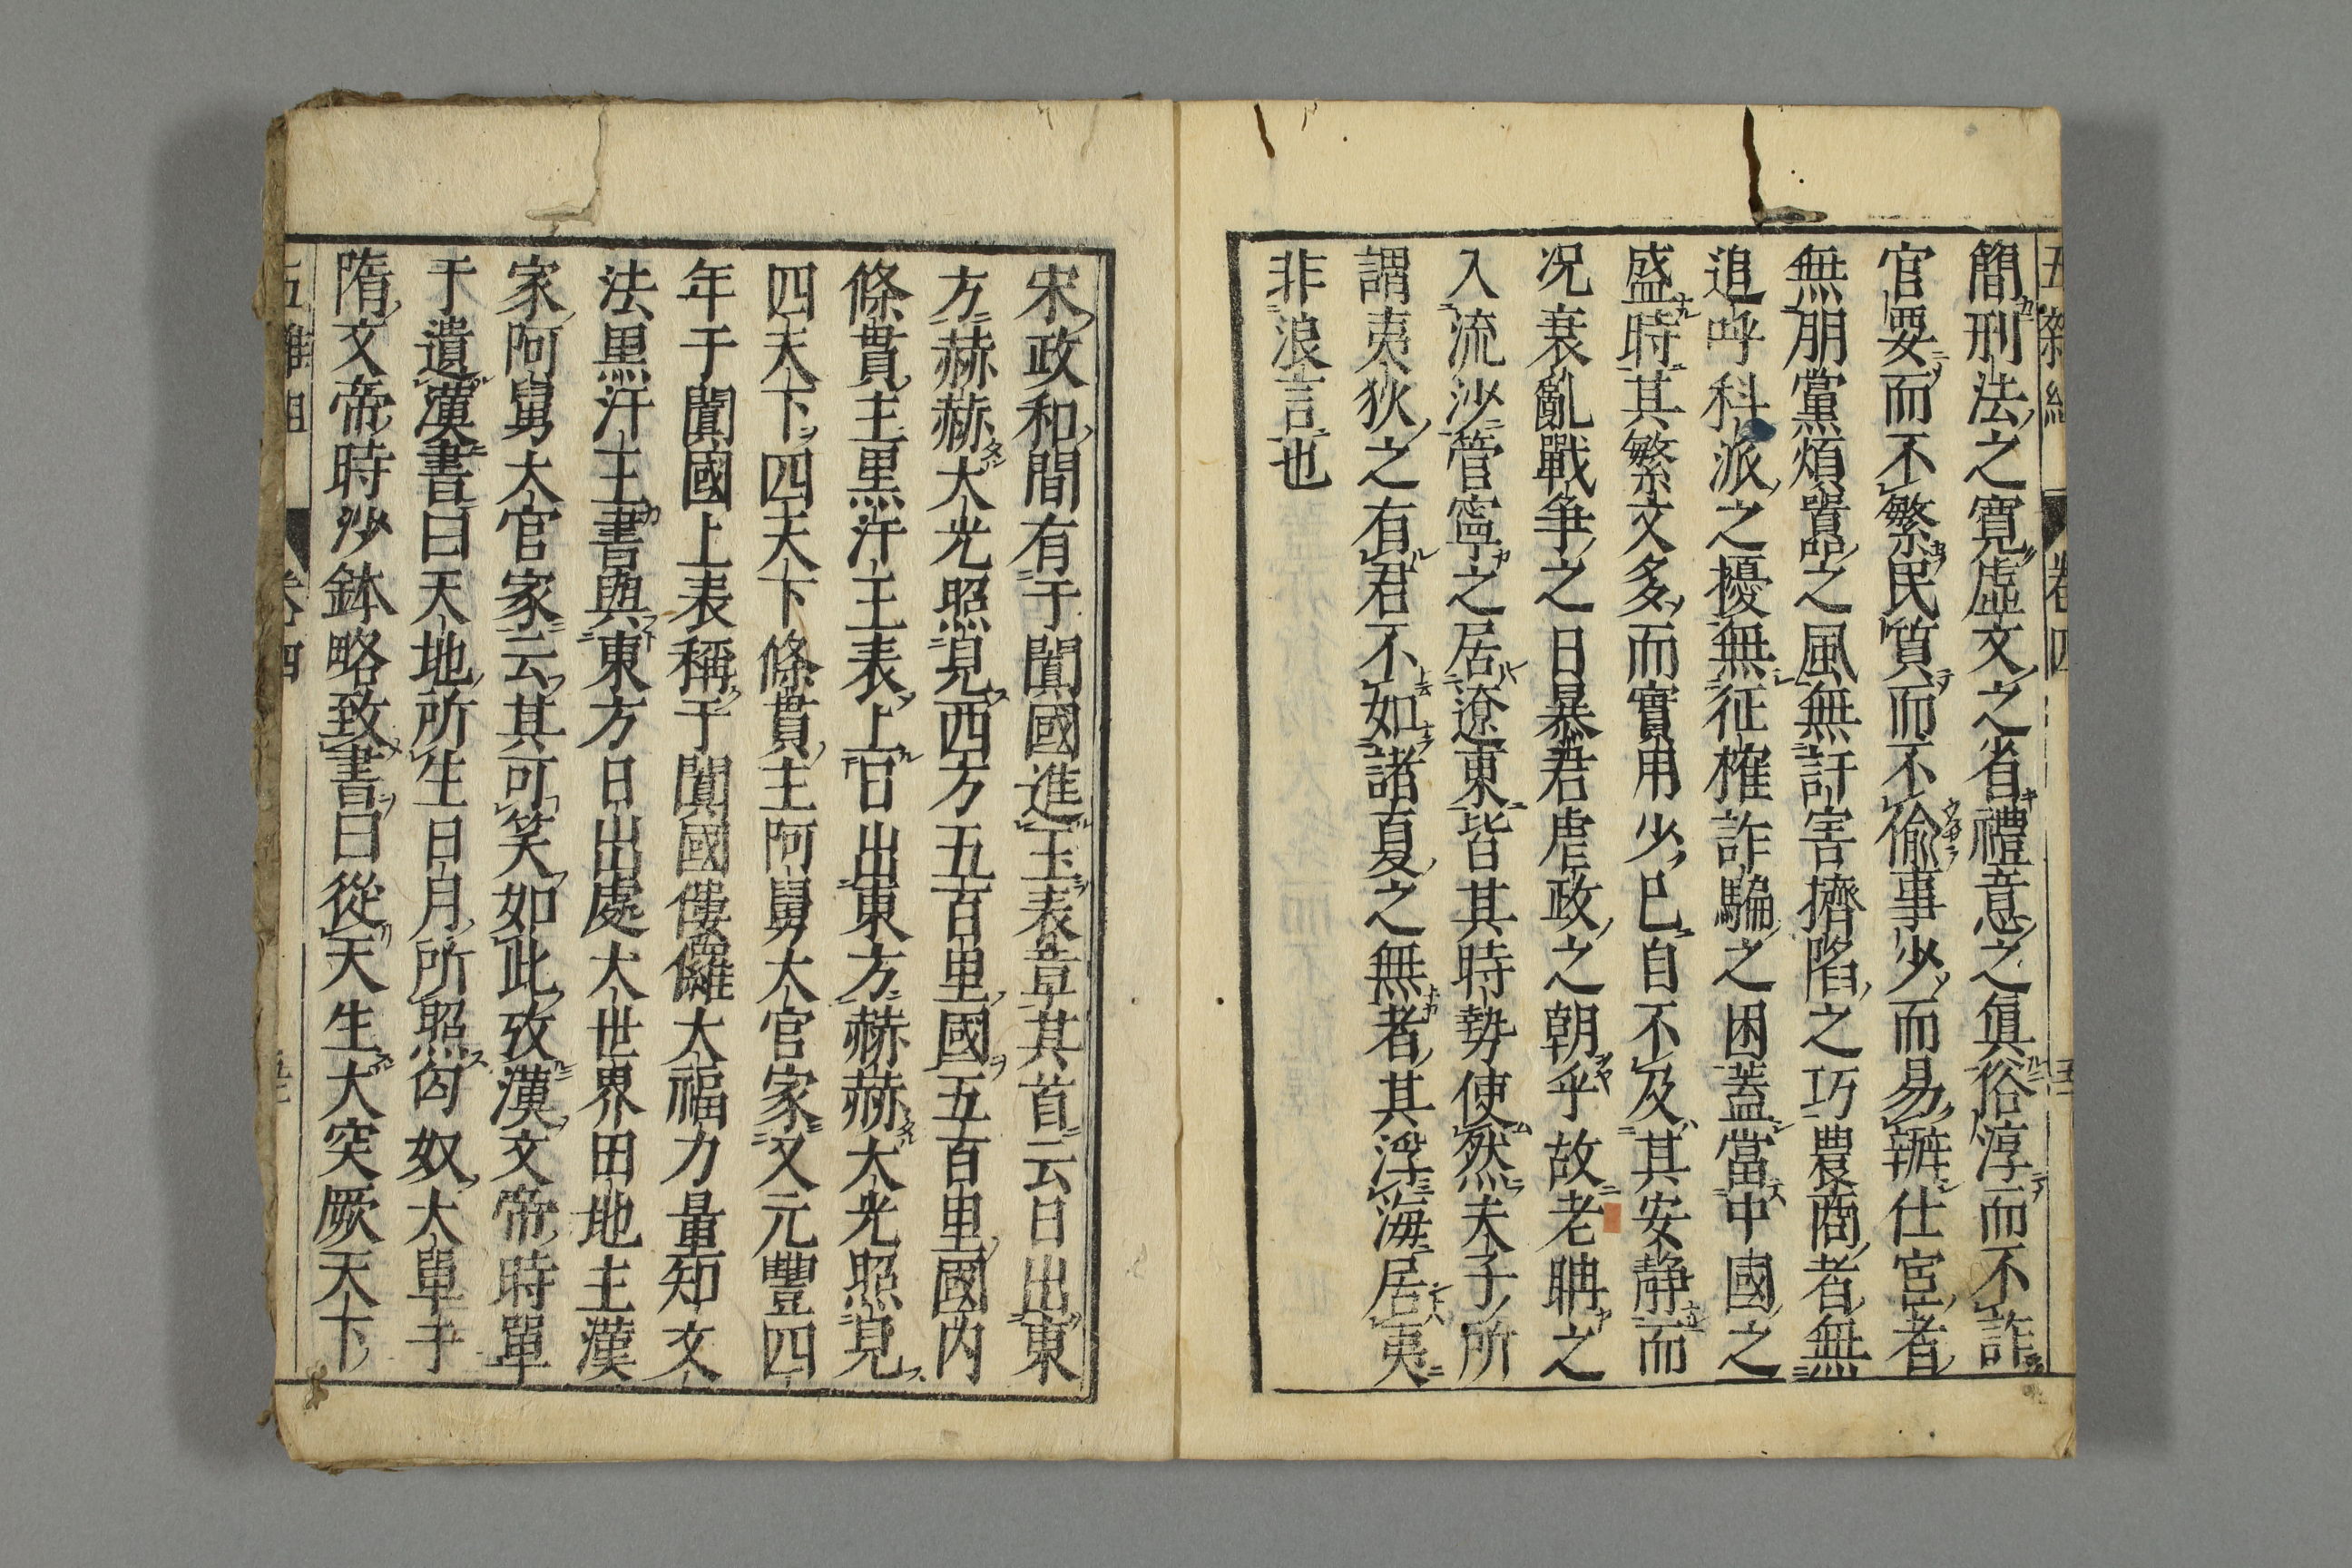 五雜組 卷四 五十
簡刑法之寛虛文之省禮意之眞俗淳而不詐
官要而不繁民質而不偷事少而易辦仕宦者
無朋黨煩囂之風無訐害擠陷之巧農商者無
追呼科派之擾無征榷詐騙之困蓋當中國之
盛時其繁文多而實用少已自不及其安靜而
況衰亂戰爭之日暴君虐政之朝乎故老聃之
入流沙管寧之居遼東皆其時勢使然夫子所
謂夷狄之有君不如諸夏之無者其浮海居夷
非浪言也
宋政和間有于闐國進玉表章其首云日出東
方赫赫大光照見西方五百里國五百里國內
條貫主黑汗王表上日出東方赫赫大光照見
四天下四天下條貫主阿舅大官家又元豐四
年于闐國上表稱于闐國僂儸大福力量知文
法黑汗王書與東方日出處大世界田地主漢
家阿舅大官家云其可笑如此攷漢文帝時單
于遺漢書曰天地所生日月所照匈奴大單于
隋文帝時沙鉢略致書曰從天生大突厥天下
五雜組 卷四